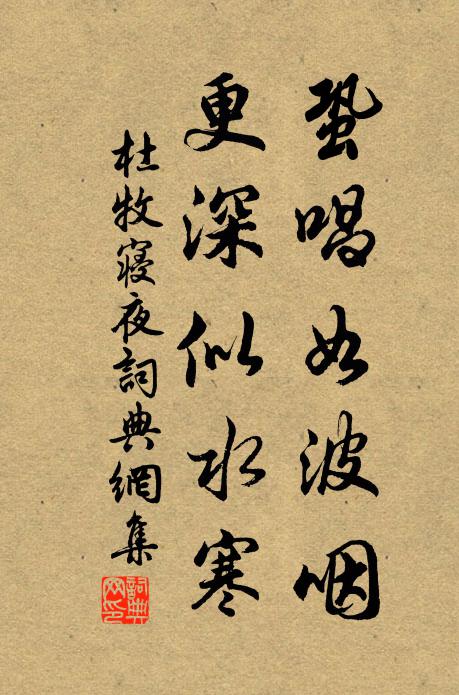 蛩唱如波咽
更深似水寒
杜牧寢夜詞典網集
詞典網印